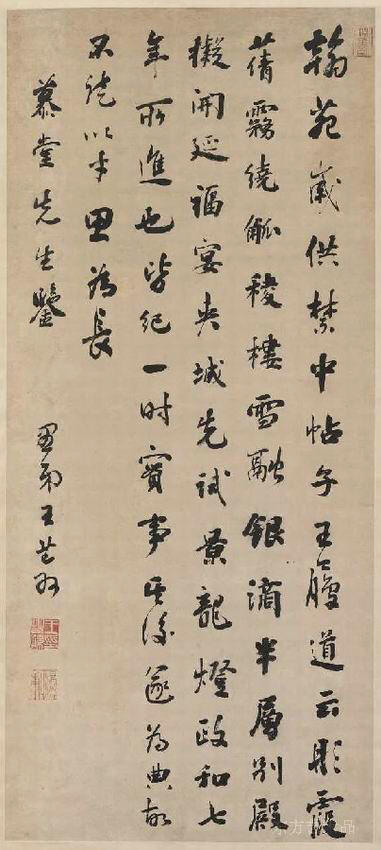 翰苑歲供禁中帖子王履道云彤霞
蒨霧繞觚稜樓雪融銀滴半層別殿
擬開延福宴夾城先試景龍燈政和七
年所進也皆紀一時實事其後遂為典故
不徒以才思為長
慕堂先生鑒
愚弟王芑孫